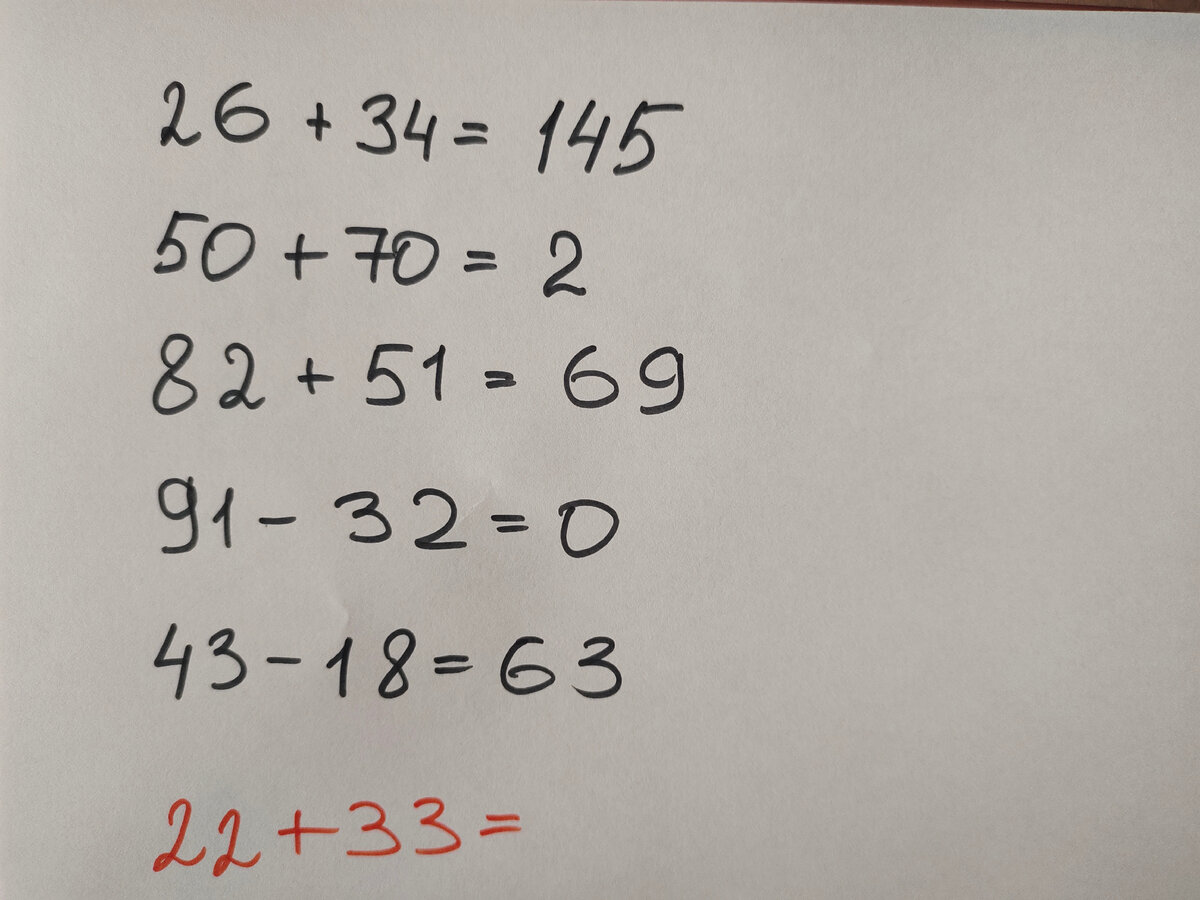 26 + 34 = 145
50 + 70 = 2
82 + 51 = 69
91 - 32 = 0
43 - 18 = 63
22 + 33 =